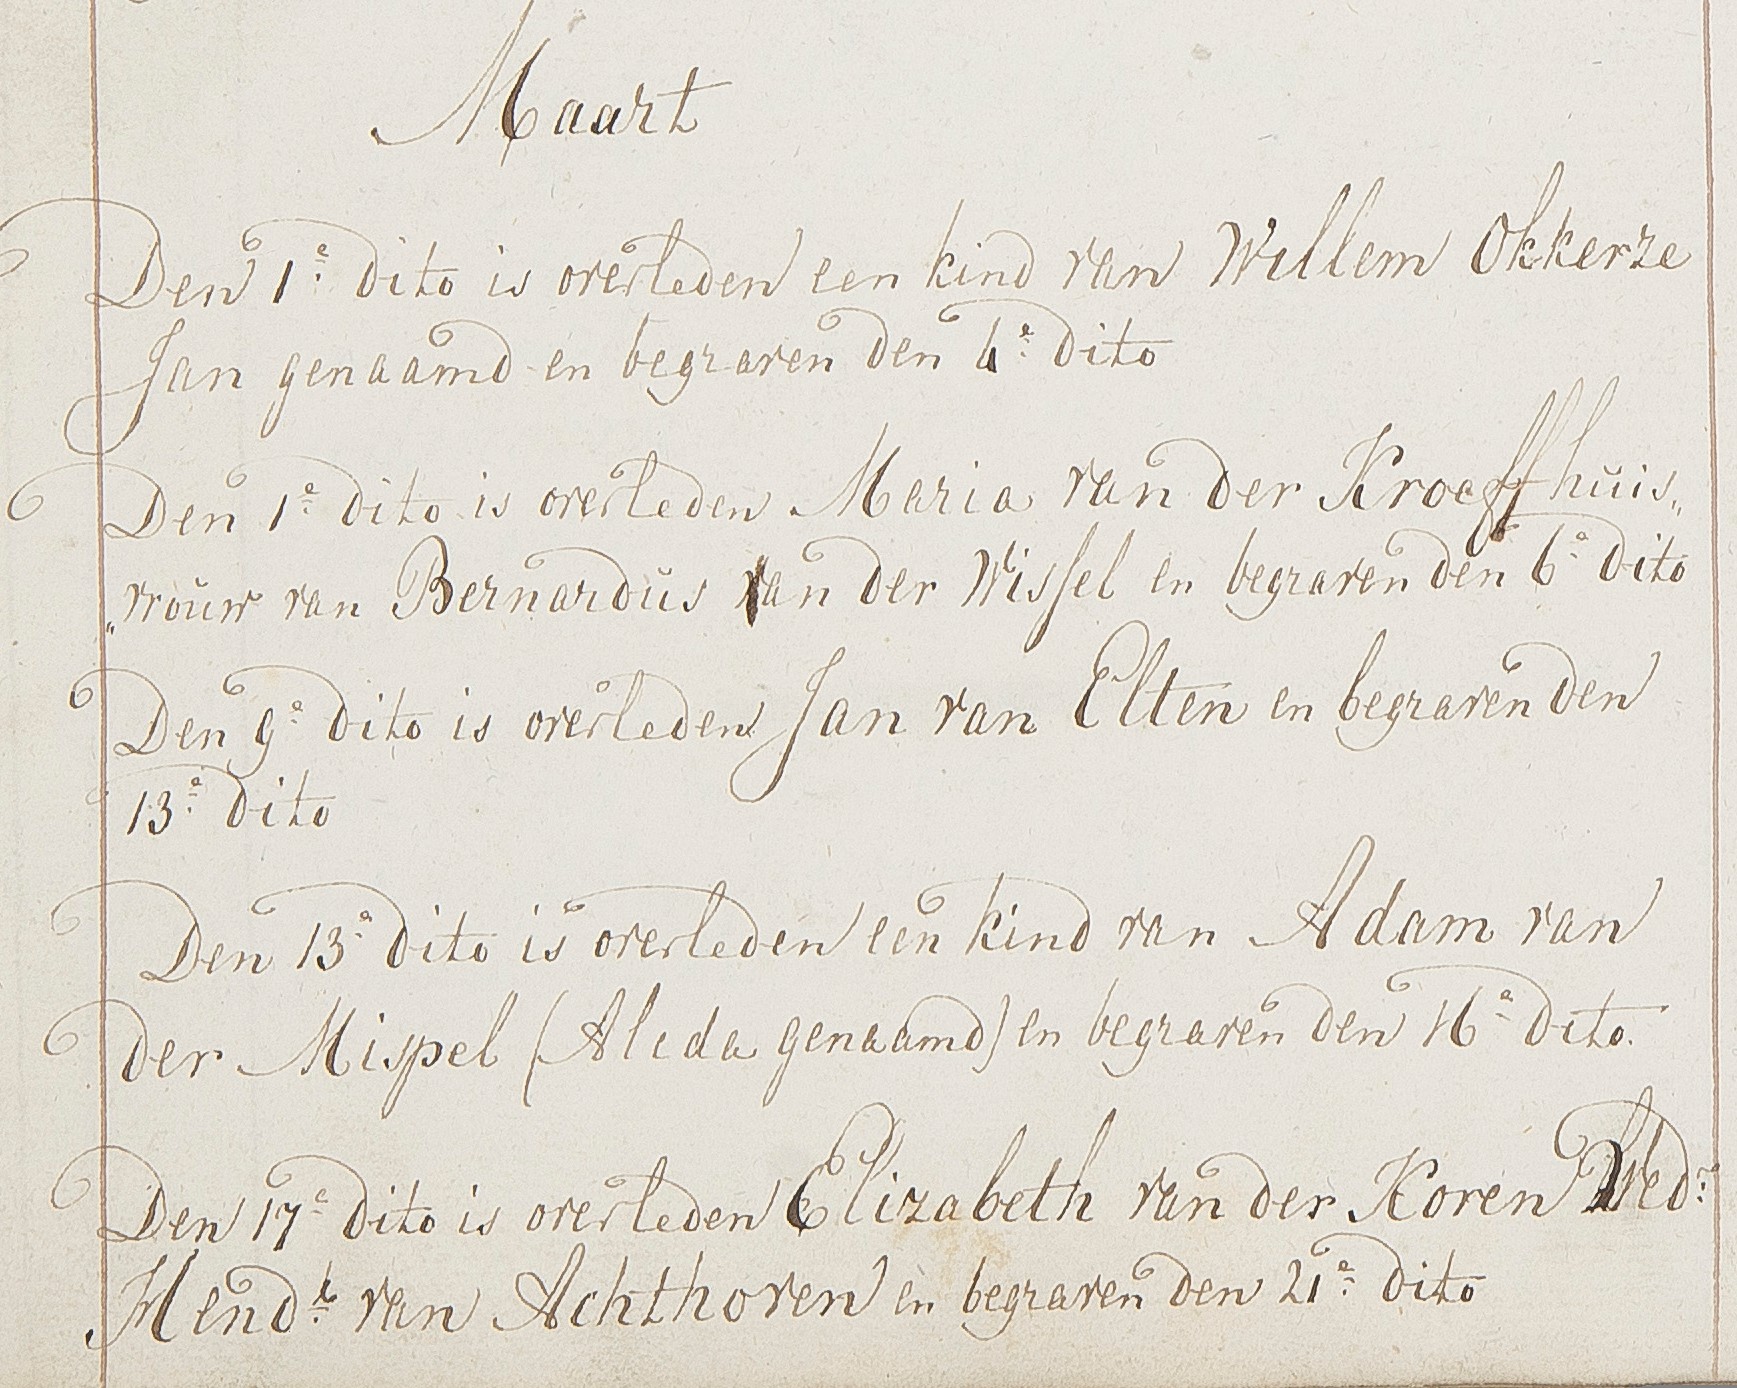 Maart
Den 1e dito is overleden een kind van Willem Okkerze
Jan genaamd en begraven den 6e dito
Den 1e dito is overleden Maria van der Kroeff huis„
„vrouw van Bernardus van der Wissel en begraven den 6e dito
Den 9e dito is overleden Jan van Elten en begraven den
13e dito
Den 13e dito is overleden een kind van Adam van
der Mispel (Alida genaamd) en begraven den 16e dito.
Den 17e dito is overleden Elizabeth van der Koren Wede:
Hendk: van Achthoven en begraven den 21e dito